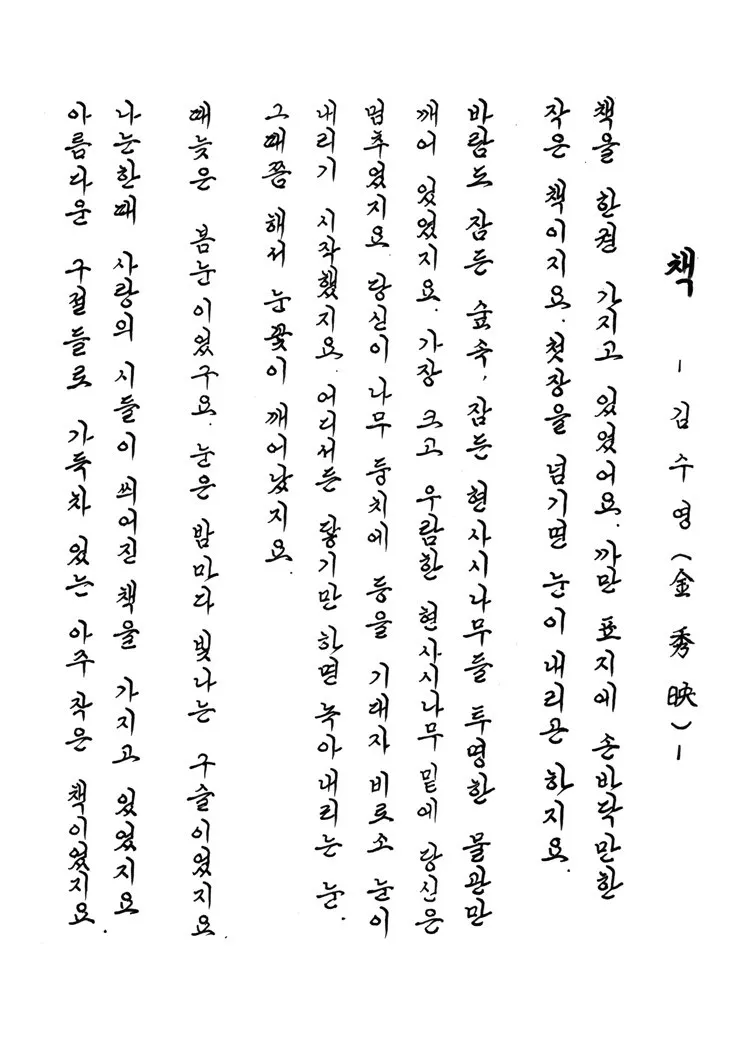 책 - 김수영(金秀映) -
책을 한권 가지고 있었어요. 까만 표지에 손바닥만한
작은 책이지요. 첫장을 넘기면 눈이 내리곤 하지요.
바람도 잠든 숲속, 잠든 현사시나무들 투명한 물관만
깨어 있었지요. 가장 크고 우람한 현사시나무 밑에 당신은
멈추었지요. 당신이 나무 둥치에 등을 기대자 비로소 눈이
내리기 시작했지요. 어디서든 닿기만 하면 녹아내리는 눈.
그때쯤 해서 눈꽃이 깨어났지요.
때늦은 봄눈이었구요. 눈은 밤마다 빛나는 구슬이었지요.
나는한때 사랑의 시들이 씌어진 책을 가지고 있었지요.
아름다운 구절들로 가득차 있는 아주 작은 책이었지요.